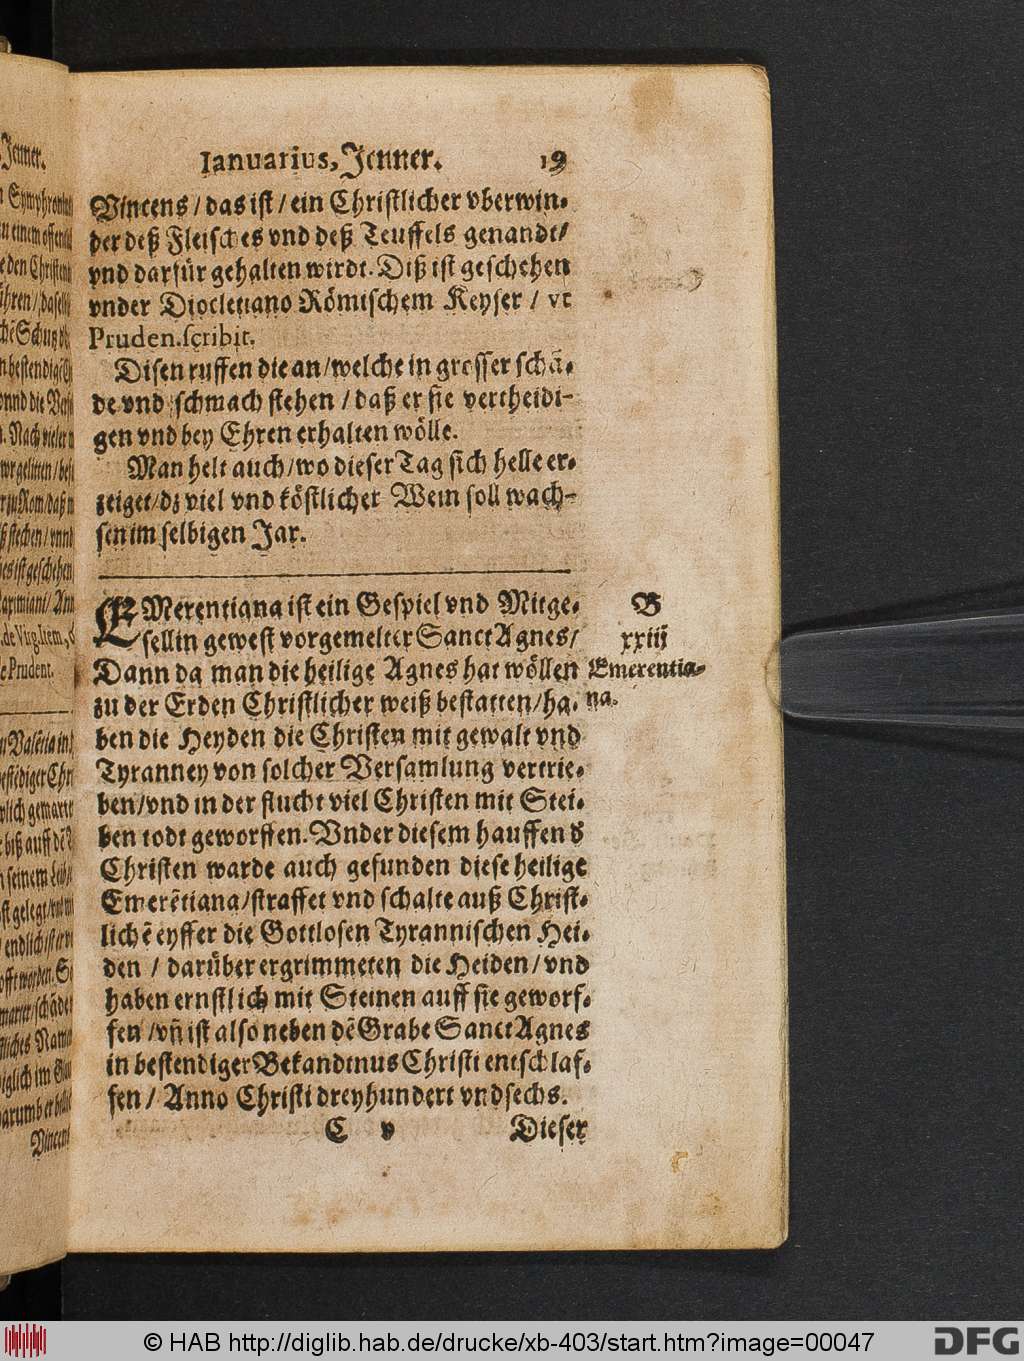 Ianuarius, Jenner. 19
Vincens / das ist / ein Christlicher vberwin-
der deß Fleisches vnd deß Teuffels genandt /
vnd darfür gehalten wirdt. Diß ist geschehen
vnder Diocletiano Römischem Keyser / vt
Pruden. scribit.
Disen ruffen die an / welche in grosser schä-
de vnd schmach stehen / daß er sie vertheidi-
gen vnd bey Ehren erhalten wölle.
Man helt auch / wo dieser Tag sich helle er-
zeiget / dz viel vnd köstlicher Wein soll wach-
sen im selbigen Jar.
EMerentiana ist ein Gespiel vnd Mitge-
sellin gewest vorgemelter Sanct Agnes /
Dann da man die heilige Agnes hat wöllen
zu der Erden Christlicher weiß bestatten / ha-
ben die Heyden die Christen mit gewalt vnd
Tyranney von solcher Versamlung vertrie-
ben / vnd in der flucht viel Christen mit Stei-
ben todt geworffen. Vnder diesem hauffen d
Christen warde auch gefunden diese heilige
Emerētiana / straffet vnd schalte auß Christ-
lichē eyffer die Gottlosen Tyrannischen Hei-
den / darüber ergrimmeten die Heiden / vnd
haben ernstlich mit Steinen auff sie geworf-
fen / vñ ist also neben dē Grabe Sanct Agnes
in bestendiger Bekandtnus Christi entschlaf-
fen / Anno Christi dreyhundert vnd sechs.
C v Dieser
B
xxiij
Emerentia-
na.
Jenner.
Vincens
© HAB http://diglib.hab.de/drucke/xb-403/start.htm?image=00047
DFG